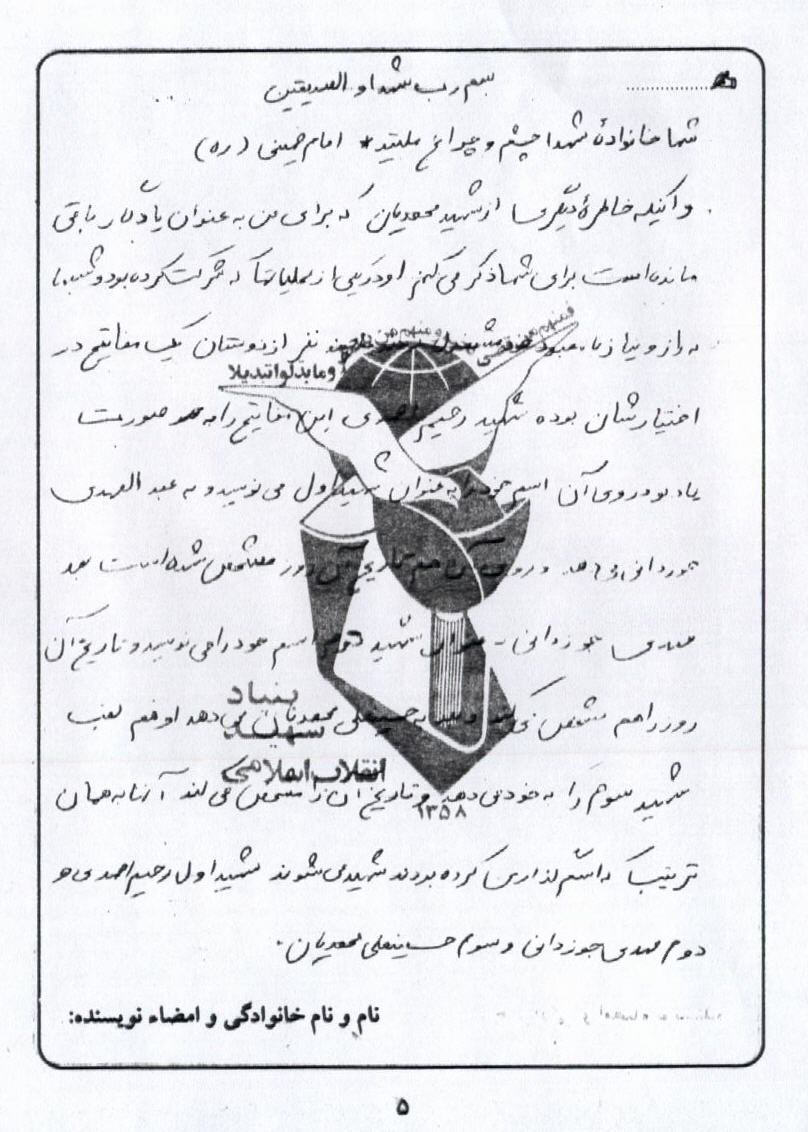 بسم رب شهدا و الصدیقین
شما خانوادهٔ شهدا چشم و چراغ ملتید * امام خمینی (ره)
و اینکه خاطرهٔ دیگری از شهید محمدیان که برای من به عنوان یادگار باقی
مانده است برای شما ذکر می کنم او در یکی از عملیاتها که شرکت کرده بود و شب با
به راز و نیاز با معبود خود مشغول نفر از دوستان یک مفاتیح در
فمنهم من قضی
و منهم من
و ما بدلوا تبدیلا
اختیارشان بوده شهید رحیم احمدی این مفاتیح را به صورت
یاد بود روی آن اسم خود را به عنوان شهید اول می نویسد و به عبد المهدی
جوزدانی می دهد و روی آن هم تاریخ آن روز مشخص شده است بعد
مهدی جوزدانی به عنوان شهید دوم اسم خود را می نویسد و تاریخ آن
روز را هم مشخص می کند و بعد به حسینعلی محمدیان می دهد او هم لقب
بنیاد
شهید
انقلاب اسلامی
شهید سوم را به خود می دهد و تاریخ آن را مشخص می کند آنها به همان
۱۳۵۸
ترتیب که اسم گذاری کرده بودند شهید می شوند شهید اول رحیم احمدی و
دوم مهدی جوزدانی و سوم حسینعلی محمدیان.
نام و نام خانوادگی و امضاء نویسنده:
۵